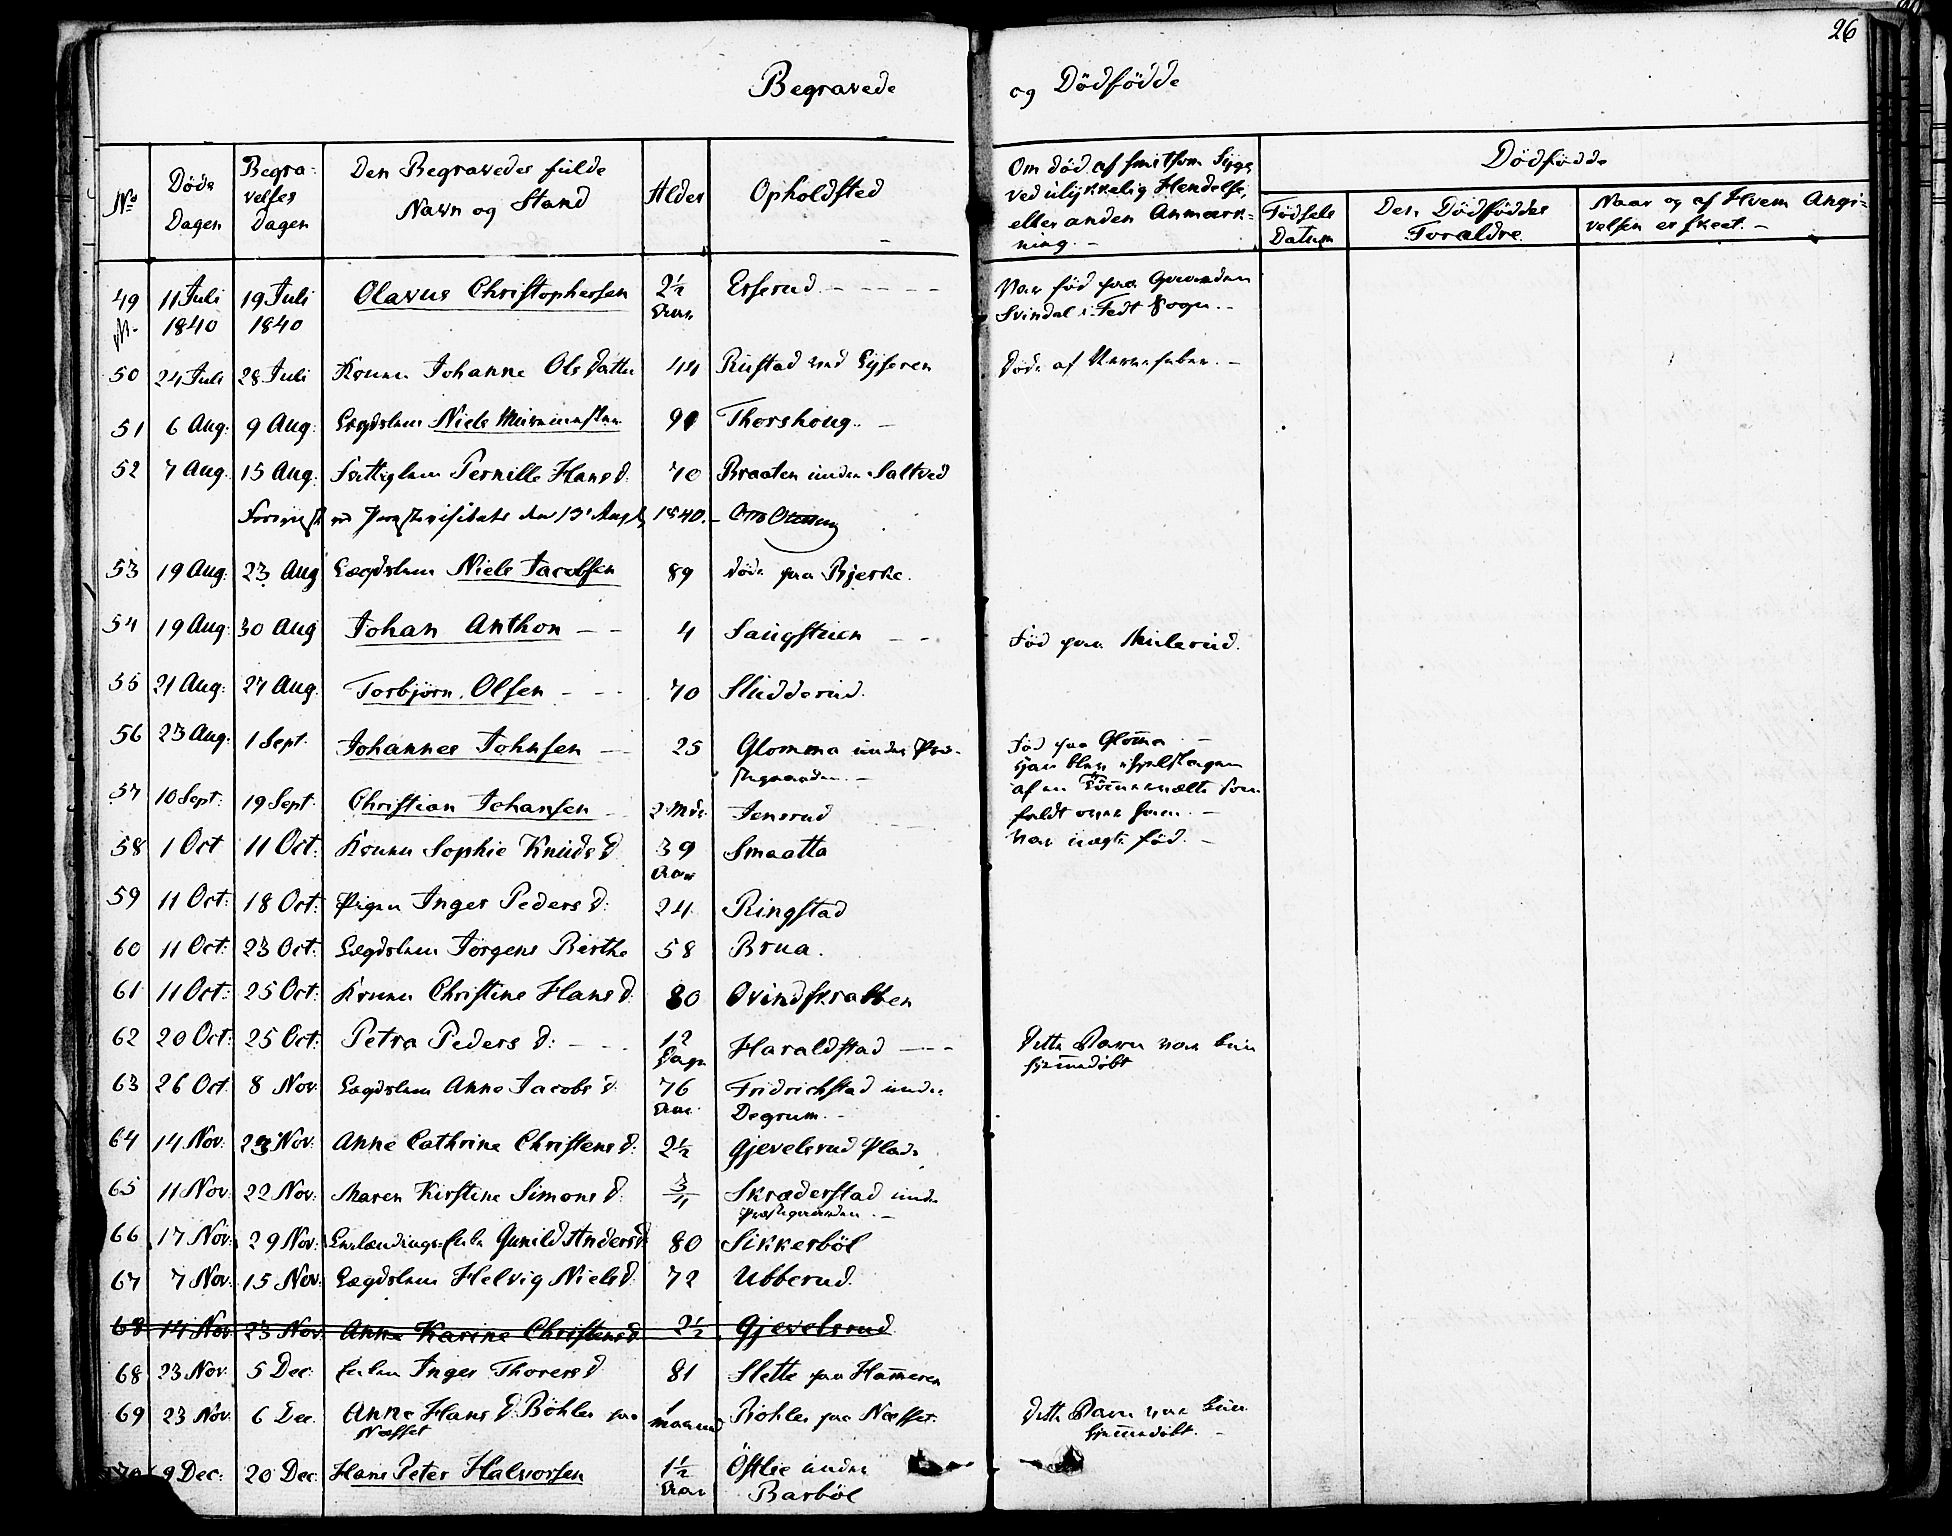 26
Begravede og Dödfödde
No
Döds Dagen
Begra-
velses
Dagen
Den Begravedes fulde
Navn og Stand
Alder
Opholdsted
Om död af smitsom Syge
ved ulykkelig Hendelse,
eller anden Anmærk-
ning. -
Dödfödde
Födsels Datum
Den Dödföddes
Forældre.
Naar og af Hvem Angi-
velsen er skeet. -
49 11 Juli 19 Juli Olavus Christophersen 2½ Esserud - - - - Var föd paa
M. 1840 1840 Aar Svindal i Sogn. -
50 24 Juli 28 Juli Konen Johanne Olsdatter 44 Rustad ved Eyseren döde af Nervefeber. -
51 6 Aug: 9 Aug: Lægdslem Niels Murmester 90 Thorshoug. -
52 7 Aug. 15 Aug: Fattiglem Pernille Hansd: 70 Braaten under Saltved
Foreviist ved Provstevisitats den 13 Aug 1840. -
53 19 Aug: 23 Aug Lægdslem Niels Jacobsen 89 döde paa Bjerke.
54 19 Aug: 30 Aug Johan Anthon - - 4 Saugstuen - - Föd paa Mulerud.
55 21 Aug: 27 Aug. Torbjörn Olsen - - - 70 Sludderud.
56 23 Aug: 1 Sept. Johannes Johnsen - 25 Glomma under Præ- Föd paa Glom̄a -
stegaarden. - han blev ihjelslagen
af en Töm̄ervælte som
57 10 Sept: 19 Sept. Christian Johansen 2 Mdr. Jensrud faldt over ham. -
58 1 Oct 11 Oct: Konen Sophie Knudsd 39 Smaatta Var uægte föd. -
Aar
59 11 Oct: 18 Oct: Pigen Inger Pedersd: 24 Ringstad
60 11 Oct: 23 Oct: Lægdslem Jörgens Berthe 58 Brua.
61 11 Oct: 25 Oct: Konen Christine Hansd: 80 Ovindskrabben
62 20 Oct: 25 Oct: Petra Peders d: - - 12 Haraldstad - - - dette Barn var kun
Dage hjem̄edöbt
63 26 Oct: 8 Nov. Lægdslem Anne Jacobsd: 76 Fridrichstad under
Aar Degrum. -
64 14 Nov: 23 Nov. Anne Cathrine Christensd: 2½ Gjevelsrud Plads
65 11 Nov: 22 Nov: Maren Kirstine Simonsd: ¾ Skræderstad under
Præstegaarden. -
66 17 Nov: 29 Nov: Enke Gunild Andersd 80 Sikkerböl
67 7 Nov: 15 Nov: Lægdslem Helvig Nielsd: 72 Ubberud.
68 14 Nov 23 Nov Anne Karine Christensd 2½ Gjevelsrud
68 23 Nov. 5 Dec: Enken Inger Thoresd 81 Slette paa Ham̄eren
69 23 Nov: 6 Dec. Anne Hans d: Böhler paa 1 Böhler paa Næsset. dette Barn var kun
Næsset maaned hjem̄edöbt. -
70 9 Dec: 20 Dec: Hans Peter Halvorsen 1½ Östlie under
Aar Barböl